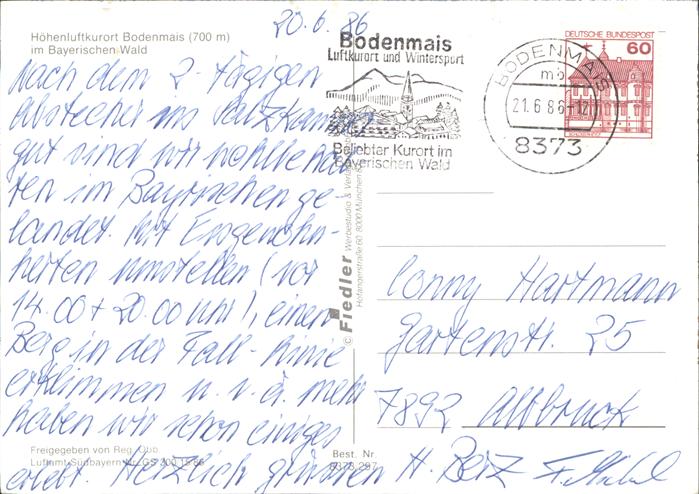 20.6.86
Höhenluftkurort Bodenmais (700 m)
im Bayerischen Wald
Nach dem 2-tägigen
Abstecher ins Salzkammer
gut sind wir wohlbehal
ten im Bayrischen ge-
landet. Mit Essgewohn-
heiten umstellen (vor
14.00 + 20.00 Uhr), einen
Berg in der Fall-Linie
erklimmen u.v.a. mehr
haben wir schon einiges
erlebt. Herzlich grüssen
Freigegeben von Reg. Obb.
Luftamt Südbayern Nr. GS 300
Bodenmais
Luftkurort und Wintersport
Beliebter Kurort im
Bayerischen Wald
BODENMAIS
mb
21.6.86-12
8373
DEUTSCHE BUNDESPOST
60
© Fiedler Werbestudio & Verlag
Hofangerstraße 60, 8000 München
Best. Nr.
8373 297
Conny Hartmann
Gartenstr. 25
7892 Albbruck
H. Betz